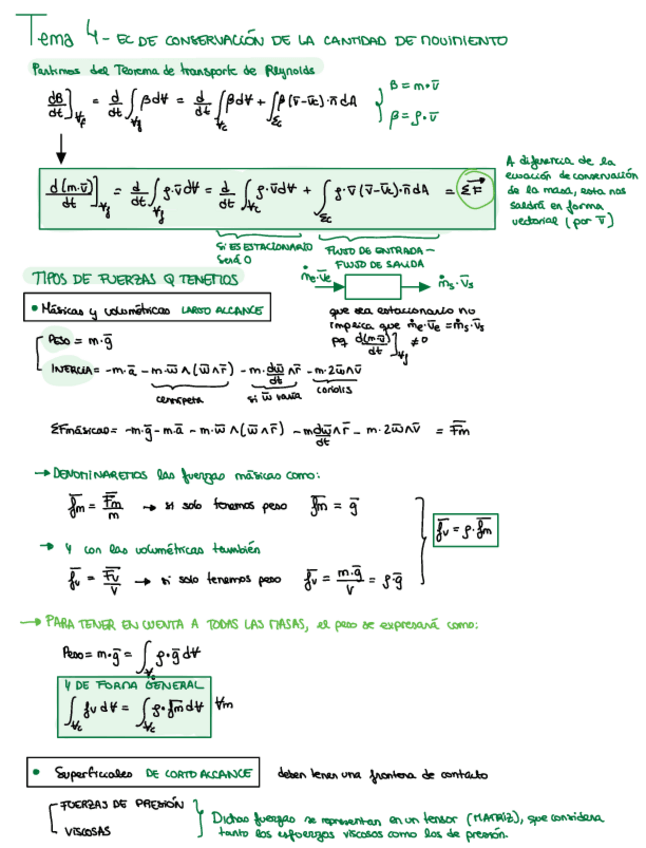 Tema 4 - EC DE CONSERVACIÓN DE LA CANTIDAD DE MOVIMIENTO
Partimos del Teorema de transporte de Reynolds
dB/dt]_Vf = d/dt ∫_Vf β dV = d/dt ∫_Vc β dV + ∫_Σc β (v̄-v̄c)·n̄ dA } B = m·v̄
β = ρ·v̄
d(m·v̄)/dt]_Vf = d/dt ∫_Vf ρ·v̄ dV = d/dt ∫_Vc ρ·v̄ dV + ∫_Σc ρ·v̄ (v̄-v̄c)·n̄ dA = ΣF̄
A diferencia de la
ecuación de conservación
de la masa, esta nos
saldrá en forma
vectorial (por v̄)
SI ES ESTACIONARIO
será 0
FLUJO DE ENTRADA -
FLUJO DE SALIDA
TIPOS DE FUERZAS Q TENEMOS
ṁe·v̄e → → ṁs·v̄s
• Másicas y volumétricas LARGO ALCANCE
que sea estacionario no
implica que ṁe·v̄e = ṁs·v̄s
pq d(m·v̄)/dt]_Vf ≠ 0
PESO = m·ḡ
INERCIA = -m·ā - m·ω̄∧(ω̄∧r̄) - m·dω̄/dt∧r̄ - m·2ω̄∧v̄
centrípeta
si ω̄ varía
coriolis
ΣFmásicas = -m·ḡ - m·ā - m·ω̄∧(ω̄∧r̄) - m dω̄/dt∧r̄ - m·2ω̄∧v̄ = F̄m
→ DENOMINAREMOS las fuerzas másicas como:
f̄m = F̄m/m → si solo tenemos peso f̄m = ḡ
f̄v = ρ·f̄m
→ Y con las volumétricas también
f̄v = F̄v/V → si solo tenemos peso f̄v = m·ḡ/V = ρ·ḡ
→ PARA TENER EN CUENTA A TODAS LAS MASAS, el peso se expresará como:
Peso = m·ḡ = ∫_Vc ρ·ḡ dV
Y DE FORMA GENERAL
∫_Vc fv dV = ∫_Vc ρ·f̄m dV ∀m
• Superficiales DE CORTO ALCANCE deben tener una frontera de contacto
FUERZAS DE PRESIÓN
VISCOSAS
Dichas fuerzas se representan en un tensor (MATRIZ), que considera
tanto los esfuerzos viscosos como los de presión.